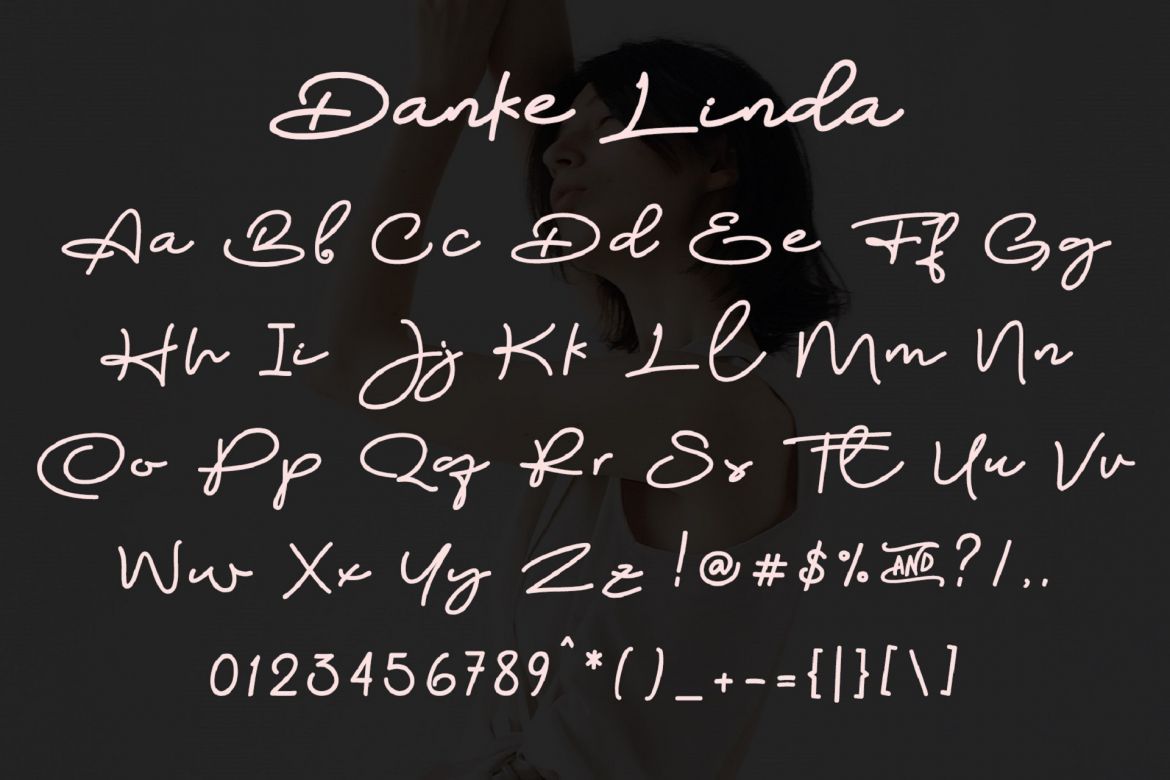 Danke Linda
Aa Bb Cc Dd Ee Ff Gg
Hh Ii Jj Kk Ll Mm Nn
Oo Pp Qq Rr Ss Tt Uu Vv
Ww Xx Yy Zz !@#$%AND?/,.
0123456789^*()_+-={|}[\]